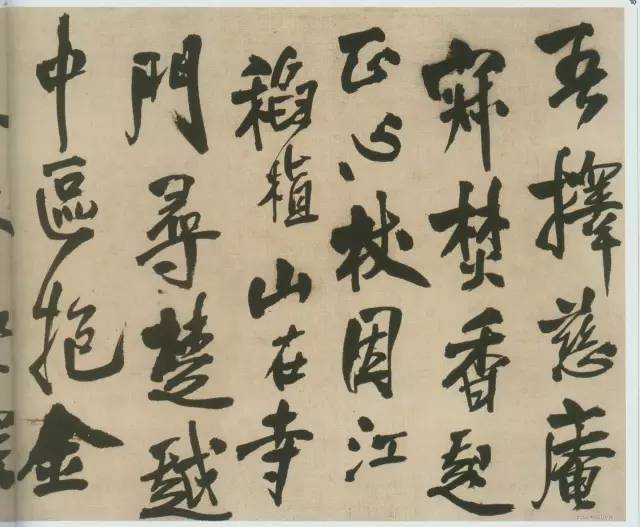 吾擇慈庵
寐焚香起
正杖固江
稻植山在寺
門尋楚越
中區抱金